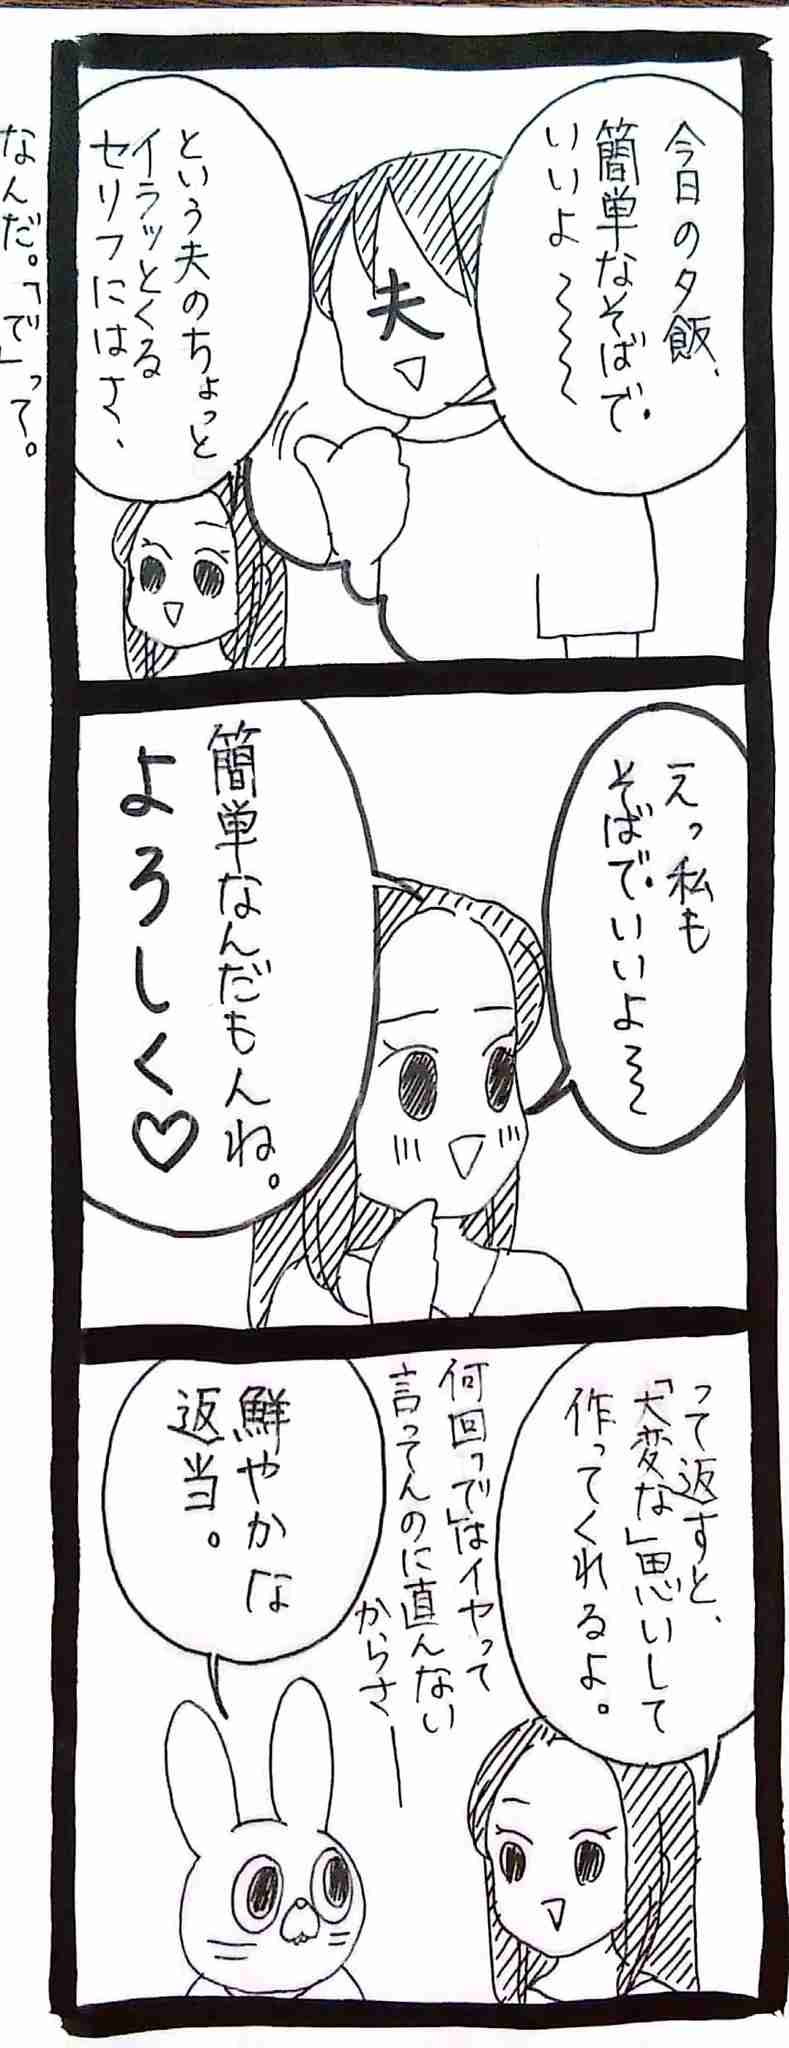 今日の夕飯、
簡単なそばで
いいよ〜〜〜
夫
という夫のちょっと
イラッとくる
セリフにはさ、
なんだ。「で」って。
えっ私も
そばでいいよ〜〜
簡単なんだもんね。
よろしく♡
って返すと、
「大変な」思いして
作ってくれるよ。
何回「で」はイヤって
言ってんのに直んない
からさー
鮮やかな
返当。